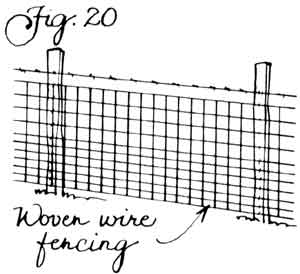 Fig. 20
Woven wire
fencing